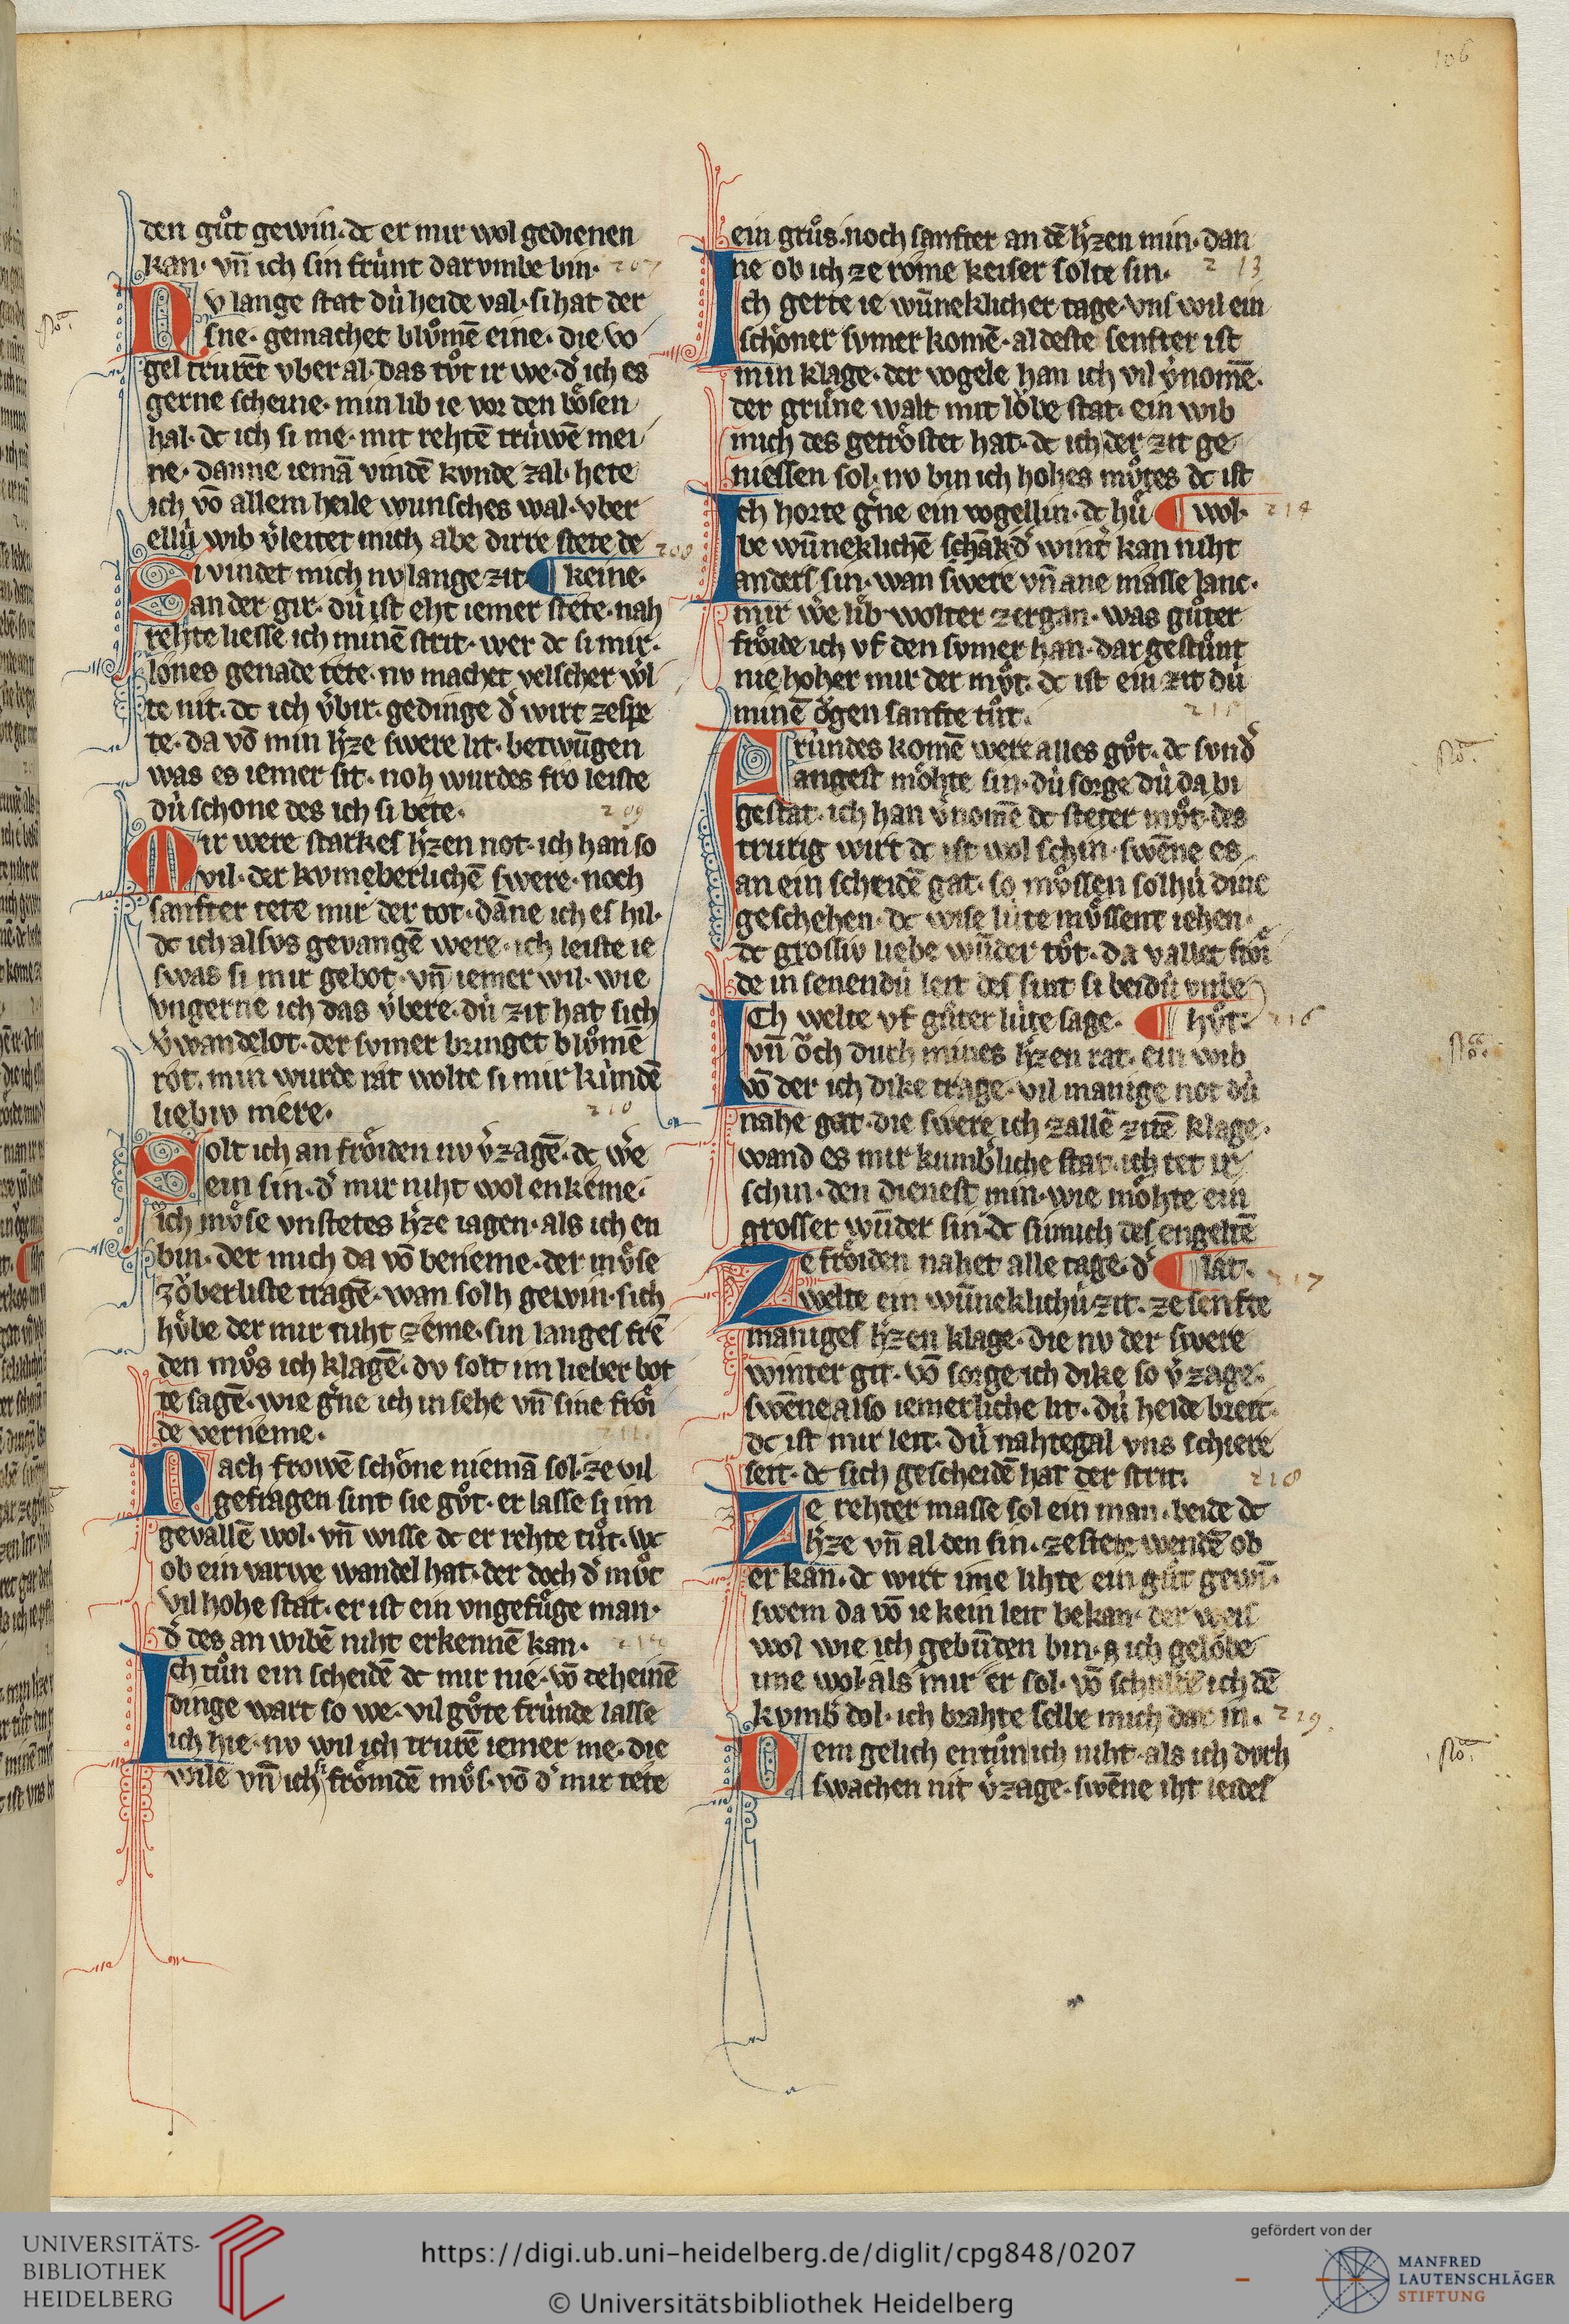 106
den gůt gewin. dc er mir wol gedienen
kan. vn̄ ich sin frúnt darvmbe bin. 207
Nv lange stat dú heide val. si hat der
sne. gemachet blůmē eine. die vo
gel trurēt vber al. das tůt ir we. d̾ ich es
gerne scheine. min lib ie vor den bo̾sen
hal. dc ich si me. mit rehtē trúwē mei
ne. danne iemā vindē kvnde zal. hete
ich vō allem heile wunsches wal. vber
ellú wib v̾leitet mich abe dirre stete de
Si vindet mich nv lange zit ¶ keine. 208
an der gir. dú ist eht iemer stete. nah
rehte liesse ich minē strit. wer dc si mir.
lones genade tete. nv machet velscher w̾l
te nit. dc ich v̾bir. gedinge d̾ wirt zespe
te. da vō min h̾ze swere lit. betwūgen
was es iemer sit. noh wurdes fro leiste
dú schone des ich si bete. 209
Mir were starkes h̾zen not. ich han so
vil. der kvmēberlichē swere. noch
sanfter tete mir der tot. dāne ich es hil.
dc ich alsvs gevangē were. ich leiste ie
swas si mir gebot. vn̄ iemer wil. wie
vngerne ich das v̾bere. dú zit hat sich
v̾wandelot. der svmer bringet blůmē
rot. min wurde rat wolte si mir kúndē
liebiv mere. 210
Solt ich an fro̾iden nv v̾zagē. dc w̾e
ein sin. d̾ mir niht wol enkeme.
ich mo̾se vnstetes h̾ze iagen. als ich en
bin. der mich da vō benieme. der mo̾se
zo̾berliste tragē. wan solh gewin. sich
hv̾be der mir niht zeme. sin langes frē
den můs ich klagē. dv solt im lieber bot
te sagē. wie g̾ne ich in sehe vn̄ sine fro̾i
de vernieme. 211
Nach frowē scho̾ne niemā sol. ze vil
gefragen sint sie gůt. er lasse si im
gevallē wol. vn̄ wisse dc er rehte tůt. wc
ob ein varwe wandel hat. der doch d̾ můt
vil hohe stat. er ist ein vngefůge man.
d̾ des an wibē niht erkennē kan. 212
Ich tůn ein scheidē dc mir nie. vō deheinē
dinge wart so we. vil gůte frúnde lasse
ich hie. nv wil ich trurē iemer me. die
wile vn̄ ich si fro̾mdē můs. vō d̾ mir tete
ein grůs. noch sanfter an dē h̾zen min. dan
ne ob ich ze rome keiser solte sin. 213
Ich gerte ie wūneklicher tage. vns wil ein
scho̾ner svmer komē. al deste senfter ist
min klage. der vogele han ich vil v̾nomē.
der grúne walt mit lo̾be stat. ein wib
mich des getro̾stet hat. dc ich der zit ge
niessen sol. nv bin ich hohes můtes dc ist
Ich horte g̾ne ein vogellin. dc hů ¶ wol. 214
be wūneklichē schāk d̾ wint̾ kan niht
anders sin. wan swere vn̄ ane masse lanc.
mir we̾ lib wolter zergan. was gůter
fro̾ide ich vf den svmer han. dar gestůnt
nie hoher mir der můt. dc ist ein zit dú
minē o̾gen sanfte tůt. 215
Frúndes komē were alles gůt. dc svnd̾
angest mo̾hte sin. dú sorge dú da bi
gestat. ich han v̾nomē dc steter můt. des
trurig wirt dc ist wol schin. swēne es
an ein scheidē gat. so mo̾ssen solhú dinc
geschehen. dc wise lúte mo̾ssent iehen.
dc grossiv liebe wūder tůt. da vallet fro̾i
de in senendú leit des sint si beidú vnbe
Ich welte vf gůter lúte sage. ¶ hůt. 216
vn̄ o̾ch durh mines h̾zen rat. ein wib
vō der ich dike trage. vil manige not dú
nahe gat. die swere ich zallē zitē klage.
wand es mir kumb̾liche stat. ich tet ir
schin. den dienest min. wie mo̾hte ein
grosser wūder sin. dc si mich des engeltē
Ze fro̾iden nahet alle tage. d̾ ¶ lat. 217
welte ein wūneklichú zit. ze senfte
maniges h̾zen klage. die nv der swere
winter git. vō sorge ich dike so v̾zage.
swēne also iemerliche lit. dú heide breit.
dc ist mir leit. dú nahtegal vns schiere
seit. dc sich gescheidē hat der strit. 218
Ze rehter masse sol ein man. beide dc
h̾ze vn̄ al den sin. ze stete wendē ob
er kan. dc wirt ime lihte ein gůt gewī.
swem da vō ie kein leit bekan. der weis
wol wie ich gebūden bin. ich gelo̾be
ime wol als mir er sol. vō schulde ich dē
kvmb̾ dol. ich brahte selbe mich dar in. 219.
Dem gelich entůn ich niht. als ich dvrh
swachen nit v̾zage. swēne iht leides
UNIVERSITÄTS-
BIBLIOTHEK
HEIDELBERG
https://digi.ub.uni-heidelberg.de/diglit/cpg848/0207
© Universitätsbibliothek Heidelberg
gefördert von der
MANFRED
LAUTENSCHLÄGER
STIFTUNG